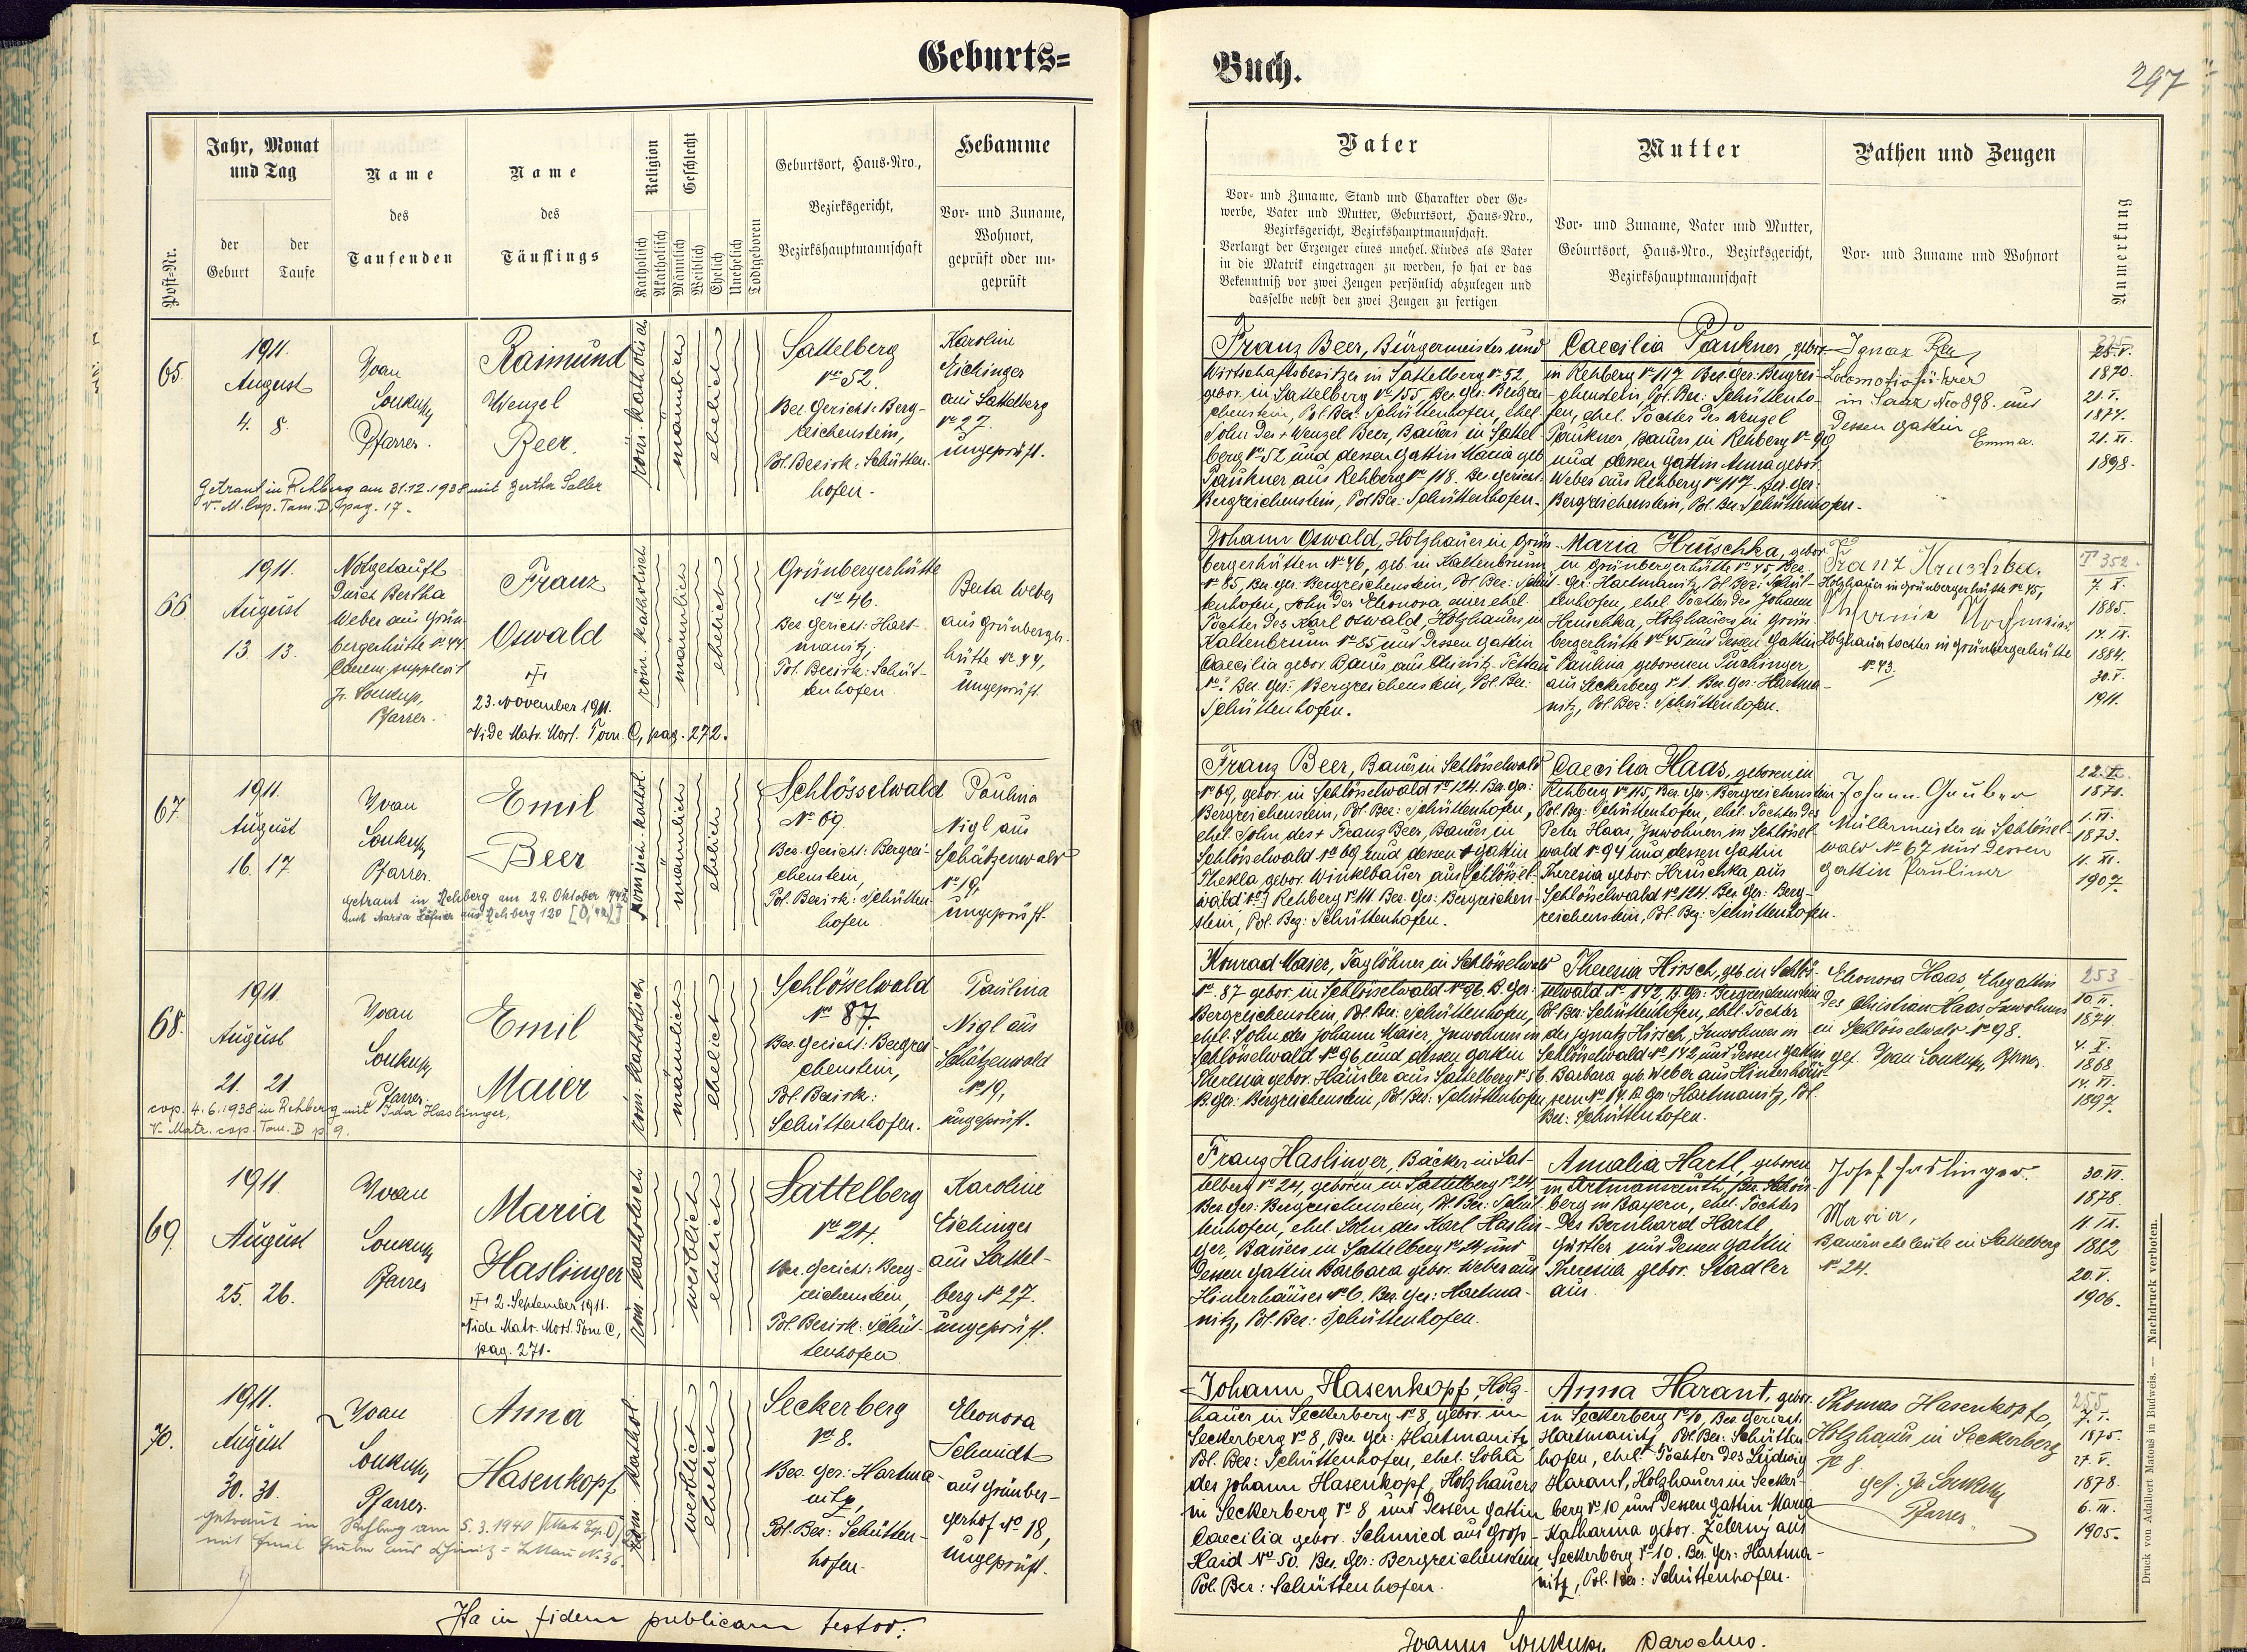 Geburts=
Buch.
297
Post=Nr.
Jahr, Monat
und Tag
der
Geburt
der
Taufe
Name
des
Taufenden
Name
des
Täuflings
Religion
Katholisch
Akatholisch
Geschlecht
Männlich
Weiblich
Ehelich
Unehelich
Todtgeboren
Geburtsort, Haus=Nro.,
Bezirksgericht,
Bezirkshauptmannschaft
Hebamme
Vor= und Zuname,
Wohnort,
geprüft oder un=
geprüft
Vater
Vor= und Zuname, Stand und Charakter oder Ge=
werbe, Vater und Mutter, Geburtsort, Haus=Nro.,
Bezirksgericht, Bezirkshauptmannschaft.
Verlangt der Erzeuger eines unehel. Kindes als Vater
in die Matrik eingetragen zu werden, so hat er das
Bekenntniß vor zwei Zeugen persönlich abzulegen und
dasselbe nebst den zwei Zeugen zu fertigen
Mutter
Vor= und Zuname, Vater und Mutter,
Geburtsort, Haus=Nro., Bezirksgericht,
Bezirkshauptmannschaft
Pathen und Zeugen
Vor= und Zuname und Wohnort
Anmerkung
65.
1911.
August
4. 8.
Yvan
Soukup
Pfarrer.
Raimund
Wenzel
Beer.
röm. katholisch
männlich
ehelich
Sattelberg
No 52.
Bez. Gericht: Berg-
reichenstein,
Pol. Bezirk: Schütten-
hofen.
Karoline
Eichinger
aus Sattelberg
No 27.
ungeprüft.
Getraut in Rehberg am 31.12.1938 mit Hertha Saller
V. M. Cop. Tom. D, pag. 17.
Franz Beer, Bürgermeister und
Wirtschaftsbesitzer in Sattelberg No 52,
gebor. in Sattelberg No 55, Bez. Ger. Bergrei-
chenstein, Pol. Bez: Schüttenhofen, ehel.
Sohn des + Wenzel Beer, Bauers in Sattel-
berg No 52 und dessen Gattin Maria geb.
Paukner aus Rehberg No 118. Bez. Gericht:
Bergreichenstein, Pol. Bez: Schüttenhofen.
Caecilia Paukner, gebor.
in Rehberg No 117. Bez. Ger: Bergrei-
chenstein, Pol. Bez: Schüttenho-
fen, ehel. Tochter des Wenzel
Paukner, Bauers in Rehberg No 99
und dessen Gattin Anna gebor.
Weber aus Rehberg No 117. Bez. Ger:
Bergreichenstein, Pol. Bez. Schüttenhofen.
Ignaz Beer
Locomotivführer
in Saaz Nro 898. und
dessen Gattin
Emma.
1870.
21. V.
1874.
21. XI.
1898.
66.
1911.
August
13. 13.
Notgetauft
durch Bertha
Weber aus Grün-
bergerhütte No 44.
Caerem. supplevit
J. Soukup,
Pfarrer.
Franz
Oswald
23. November 1911.
Vide Matr. Mort. Tom. C, pag. 272.
röm. katholisch
männlich
ehelich
Grünbergerhütte
No 46.
Bez. Gericht: Hart-
manitz,
Pol. Bezirk: Schüt-
tenhofen.
Berta Weber
aus Grünberger-
hütte No 44,
ungeprüft.
Johann Oswald, Holzhauer in Grün-
bergerhütten No 46, geb. in Kaltenbrunn
No 85, Bez. Ger. Bergreichenstein, Pol. Bez: Schüt-
tenhofen, Sohn der Eleonora einer ehel.
Tochter des Karl Oswald, Holzhauers in
Kaltenbrunn No 85 und dessen Gattin
Caecilia gebor. Bauer aus Chinitz-Tettau
No ? Bez. Ger: Bergreichenstein, Pol. Bez:
Schüttenhofen.
Maria Hruschka, gebor.
in Grünbergerhütte No 45, Bez.
Ger: Hartmanitz, Pol. Bez: Schüt-
tenhofen, ehel. Tochter des Johann
Hruschka, Holzhauers in Grün-
bergerhütte No 45 und dessen Gattin
Paulina geborenen Puchinger,
aus Seckerberg No 1. Bez. Ger: Hartma-
nitz, Pol. Bez: Schüttenhofen.
Franz Hruschka.
Holzhauer in Grünbergerhütte No 45,
Holzhauerstochter in Grünbergerhütte
No 43.
T 352
7. X.
1885.
17. IX.
1884.
30. V.
1911.
67.
1911.
August
16. 17.
Yvan
Soukup
Pfarrer.
Emil
Beer
getraut in Rehberg am 29. Oktober 1942
mit Maria aus Rehberg 120
römisch-kathol.
männlich
ehelich
Schlösselwald
No 69
Bez. Gericht: Bergrei-
chenstein,
Pol. Bezirk: Schütten-
hofen.
Paulina
Nigl aus
Schätzenwald
No 19,
ungeprüft.
Franz Beer, Bauer in Schlösselwald
No 69, gebor. in Schlösselwald No 124. Bez. Ger:
Bergreichenstein, Pol. Bez: Schüttenhofen,
ehel. Sohn des + Franz Beer, Bauers in
Schlösselwald No 69 und dessen + Gattin
Thekla gebor. Winkelbauer aus Schlössel-
wald Rehberg No 111. Bez. Ger: Bergreichen-
stein, Pol. Bez: Schüttenhofen.
Caecilia Haas, geboren in
Rehberg No 115, Bez. Ger: Bergreichenstein
Pol. Bez: Schüttenhofen, ehel. Tochter des
Peter Haas, Inwohners in Schlössel-
wald No 94 und dessen Gattin
Theresia gebor. Hruschka aus
Schlösselwald No 124. Bez. Ger: Berg-
reichenstein, Pol. Bez: Schüttenhofen.
Johann Gruber
Müllermeister in Schlössel-
wald No 67 und dessen
Gattin Pauline
22. X.
1871.
1. VI.
1873.
11. XI.
1907.
68.
1911.
August
21. 21.
Yvan
Soukup
Pfarrer.
Emil
Maier
cop. 4.6.1938 in Rehberg mit Ida Haslinger,
V. Matr. cop. Tom. D p. 9.
röm. katholisch
männlich
ehelich
Schlösselwald
No 87.
Bez. Gericht: Bergrei-
chenstein,
Pol. Bezirk:
Schüttenhofen.
Paulina
Nigl aus
Schätzenwald
No 19,
ungeprüft.
Konrad Maier, Taglöhner in Schlösselwald
No 87 gebor. in Schlösselwald No 96. B. Ger:
Bergreichenstein, Pol. Bez: Schüttenhofen,
ehel. Sohn des Johann Maier, Inwohners in
Schlösselwald No 96 und dessen Gattin
Theresia gebor. Häusler aus Sattelberg No 56.
B. Ger: Bergreichenstein, Pol. Bez: Schüttenhofen
Theresia Hirsch, geb. in Schlös-
selwald No 142, B. Ger: Bergreichenstein
Pol. Bez: Schüttenhofen, ehel. Tochter
des Ignatz Hirsch, Inwohners in
Schlösselwald No 142, und dessen Gattin
Barbara geb. Weber aus Hinterhäu-
sern No 14. B. Ger: Hartmanitz, Pol.
Bez: Schüttenhofen.
Eleonora Haas, Ehegattin
des Christian Haas, Inwohners
in Schlösselwald No 98.
gef. Yvan Soukup, Pfarrer.
253
10. II.
1874.
4. X.
1868
14. VI.
1897.
69.
1911.
August
25. 26.
Yvan
Soukup
Pfarrer
Maria
Haslinger
2. September 1911.
Vide Matr. Mort. Tom. C,
pag. 271.
röm. katholisch
weiblich
ehelich
Sattelberg
No 24.
Bez. Gericht: Berg-
reichenstein,
Pol. Bezirk: Schüt-
tenhofen.
Karoline
Eichinger
aus Sattel-
berg No 27.
ungeprüft.
Franz Haslinger, Bäcker in Sat-
telberg No 24, geboren in Sattelberg No 24,
Bez. Ger: Bergreichenstein, Pol. Bez: Schüt-
tenhofen, ehel. Sohn des Karl Haslin-
ger, Bauers in Sattelberg No 24 und
dessen Gattin Barbara gebor. Weber aus
Hinterhäuser No 6. Bez. Ger: Hartma-
nitz, Pol. Bez: Schüttenhofen.
Amalia Hartl, geboren
in Artmansreuth, Bez. Schön-
berg in Bayern, ehel. Tochter
des Bernhard Hartl,
Gürtler und dessen Gattin
Theresia gebor. Stadler
aus
Josef Haslinger.
Maria,
Bauerneheleute in Sattelberg
No 24.
30. VI.
1878.
11. IX.
1882
20. V.
1906.
70.
1911.
August
30. 31.
Yvan
Soukup
Pfarrer.
Anna
Hasenkopf
getraut in Rehberg am 5.3.1940
mit Emil Gruber aus Chinitz-Tettau No 36.
röm. kathol.
weiblich
ehelich
Seckerberg
No 8.
Bez. Ger: Hartma-
nitz,
Pol. Bez: Schütten-
hofen.
Eleonora
Schmidt
aus Grünber-
gerhof No 18,
ungeprüft.
Johann Hasenkopf, Holz-
hauer in Seckerberg No 8, gebor. in
Seckerberg No 8, Bez. Ger: Hartmanitz
Pol. Bez: Schüttenhofen, ehel. Sohn
des Johann Hasenkopf, Holzhauers
in Seckerberg No 8 und dessen Gattin
Caecilia gebor. Schmied aus Groß-
Haid No 50. Bez. Ger: Bergreichenstein,
Pol. Bez: Schüttenhofen.
Anna Harant, gebor.
in Seckerberg No 10, Bez. Gericht:
Hartmanitz, Pol. Bez: Schütten-
hofen, ehel. Tochter des Ludwig
Harant, Holzhauers in Secker-
berg No 10, und dessen Gattin Maria
Katharina gebor. Zelerny aus
Seckerberg No 10. Bez. Ger: Hartma-
nitz, Pol. Bez: Schüttenhofen.
Thomas Hasenkopf,
Holzhauer in Seckerberg
No 8.
gef. Yv. Soukup
Pfarrer
255
7. I.
1875.
27. V.
1878.
6. III.
1905.
Ita in fidem publicam testor:
Joannes Soukup, parochus.
Druck von Adalbert Matous in Budweis. — Nachdruck verboten.